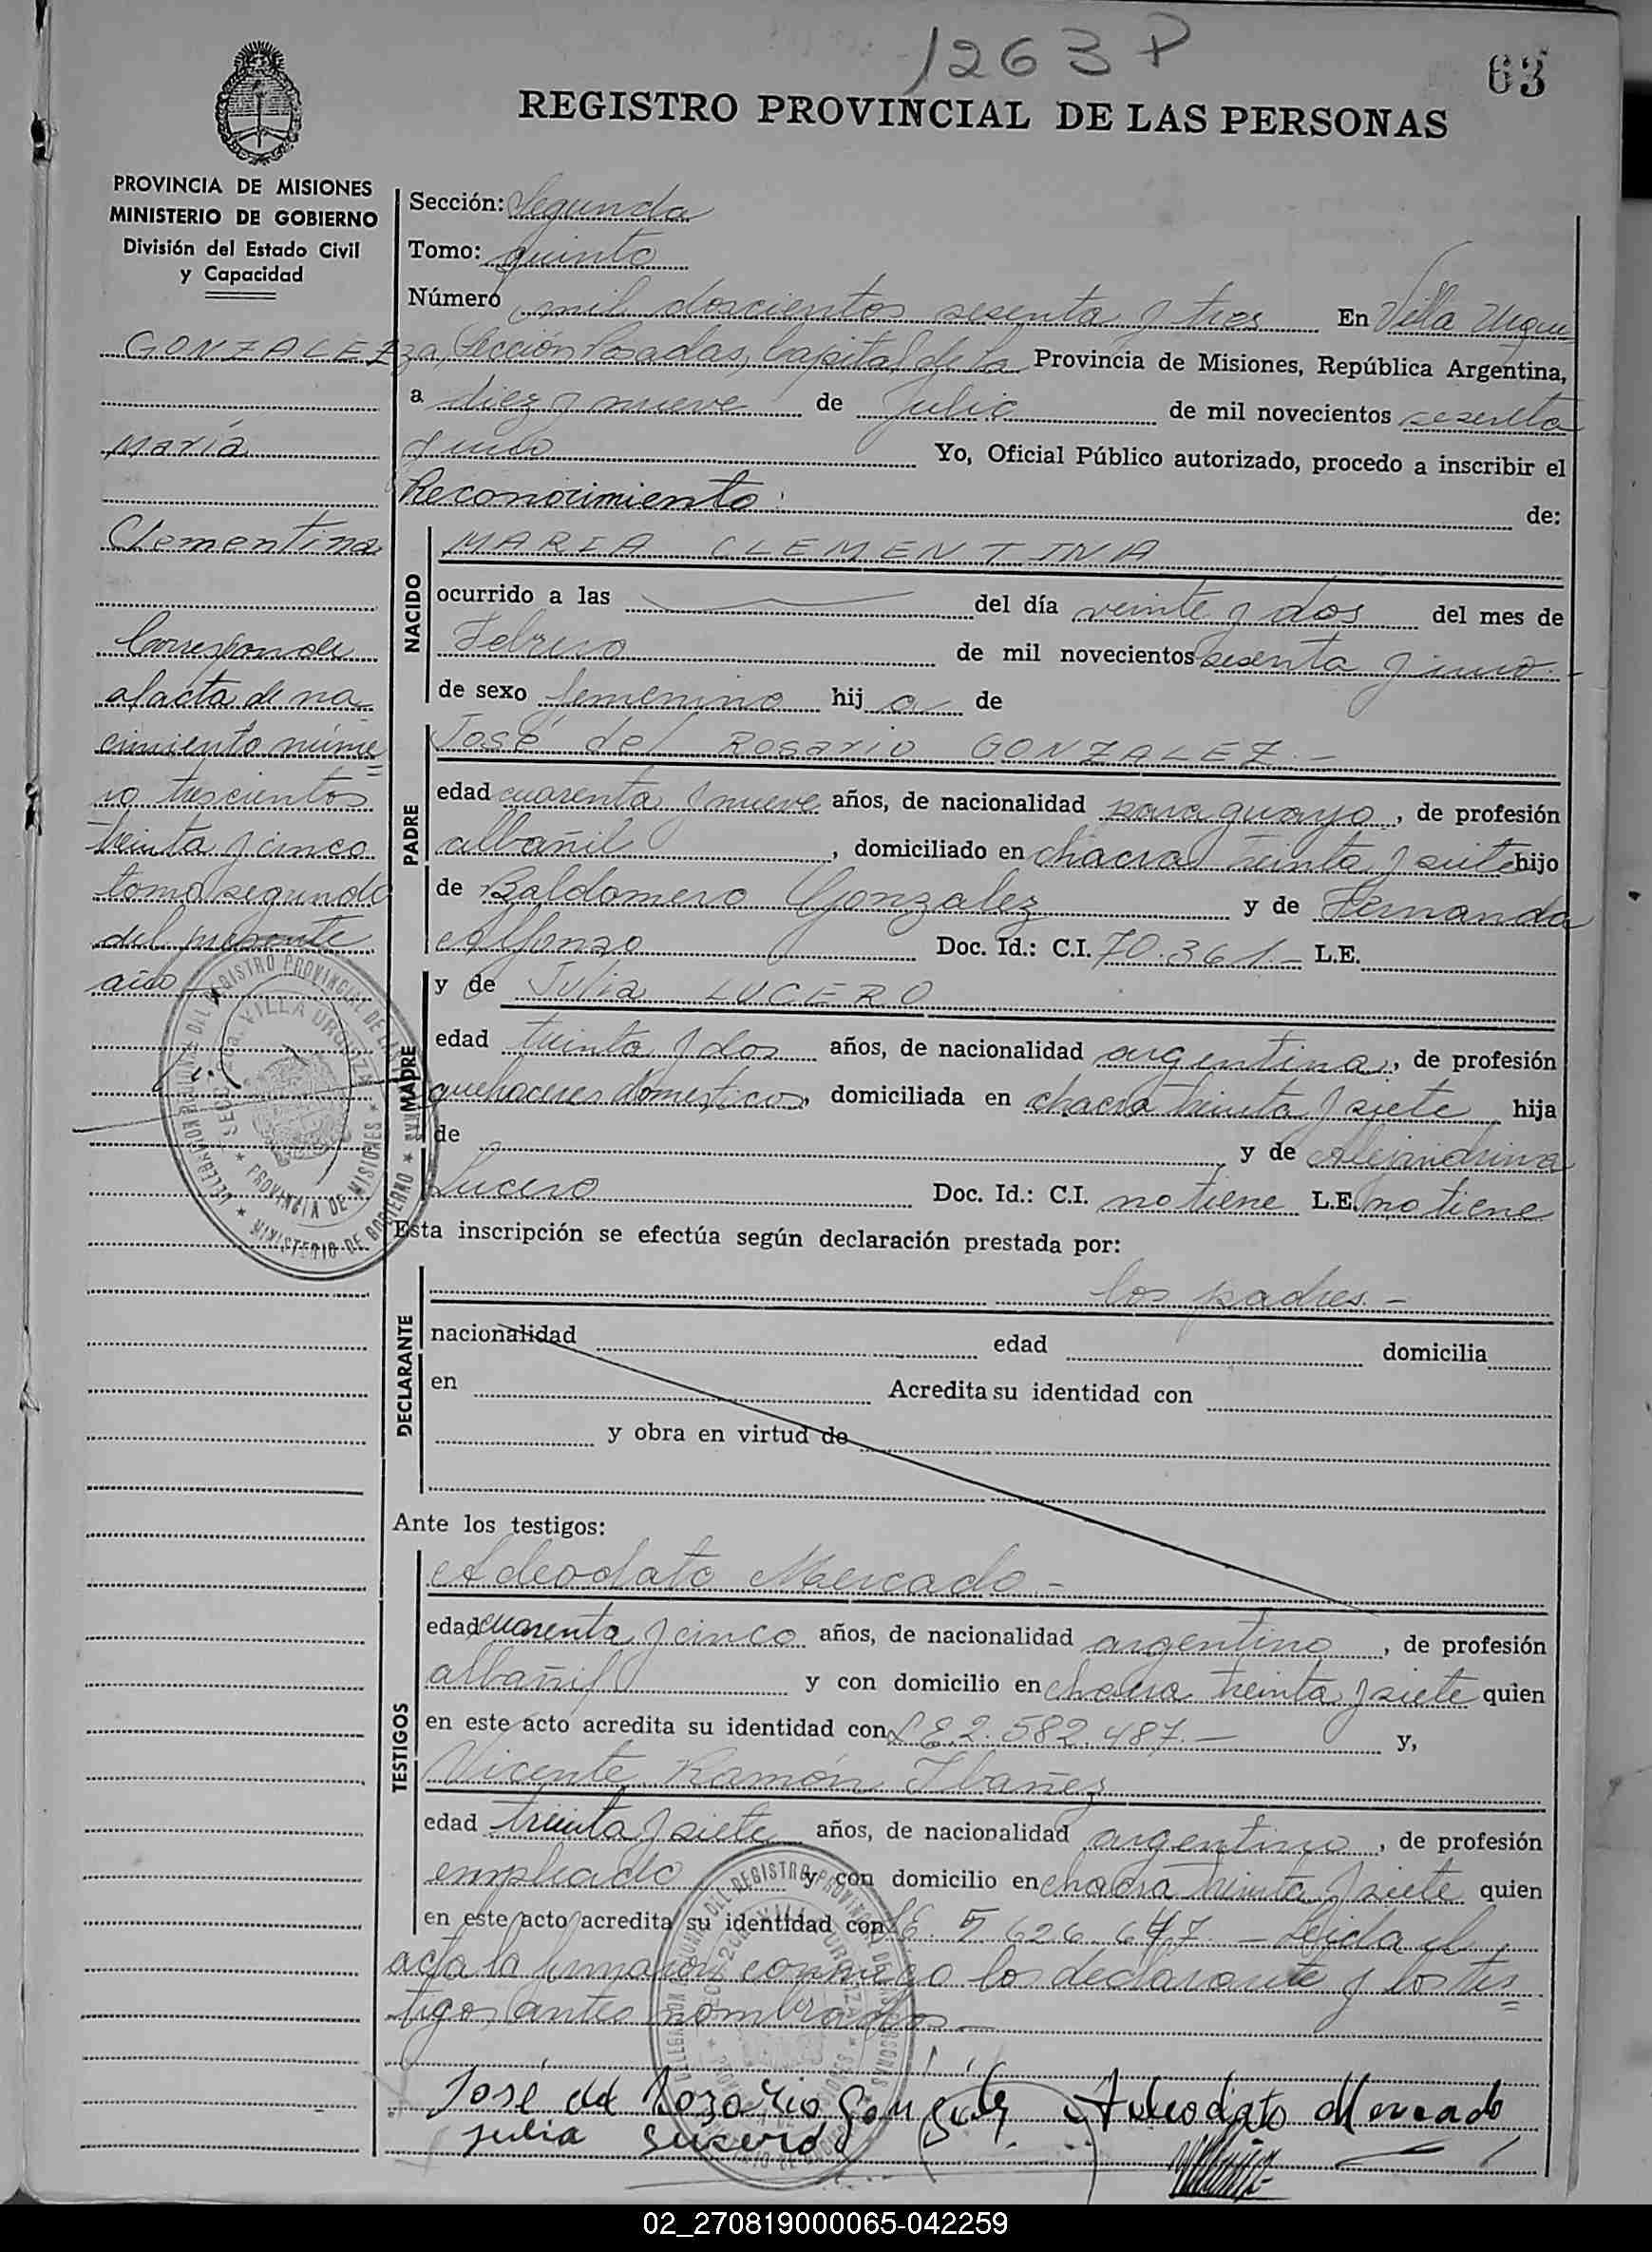 1263 P
63
REGISTRO PROVINCIAL DE LAS PERSONAS
PROVINCIA DE MISIONES
MINISTERIO DE GOBIERNO
División del Estado Civil
y Capacidad
GONZALEZ
María
Clementina
Corresponde
al acta de na
cimiento núme=
ro trescientos
treinta y cinco
tomo segundo
del presente
año
Sección: Segunda
Tomo: quinto
Número mil doscientos sesenta y tres En Villa Urqui
za, Sección Posadas, Capital de la Provincia de Misiones, República Argentina,
a diez y nueve de Julio de mil novecientos sesenta
y uno Yo, Oficial Público autorizado, procedo a inscribir el
Reconocimiento: de:
NACIDO
MARIA CLEMENTINA
ocurrido a las del día veinte y dos del mes de
Febrero de mil novecientos sesenta y uno.-
de sexo femenino hij a de
PADRE
José del Rosario GONZALEZ.-
edad cuarenta y nueve años, de nacionalidad paraguayo, de profesión
albañil, domiciliado en chacra treinta y siete hijo
de Baldomero Gonzalez y de Fernanda
Alfonzo Doc. Id.: C.I. 70.361.- L.E.
MADRE
y de Julia LUCERO
edad treinta y dos años, de nacionalidad argentina, de profesión
quehaceres domesticos, domiciliada en chacra treinta y siete hija
de y de Alejandrina
Lucero Doc. Id.: C.I. no tiene L.E. no tiene
Esta inscripción se efectúa según declaración prestada por:
DECLARANTE
los padres.-
nacionalidad edad domicilia
en Acredita su identidad con
y obra en virtud de
Ante los testigos:
TESTIGOS
Adeodato Mercado-
edad cuarenta y cinco años, de nacionalidad argentino, de profesión
albañil y con domicilio en chacra treinta y siete quien
en este acto acredita su identidad con LE 2.582.487.- y,
Vicente Ramón Ibañez
edad treinta y siete años, de nacionalidad argentino, de profesión
empleado y con domicilio en chacra treinta y siete quien
en este acto acredita su identidad con LE. 5 626 647.- Leida el
acta la firman conmigo los declarante y los tes=
tigos antes nombrados-
José del Rozario Gonzalez Adeodato Mercado
Julia Lucero
02_270819000065-042259